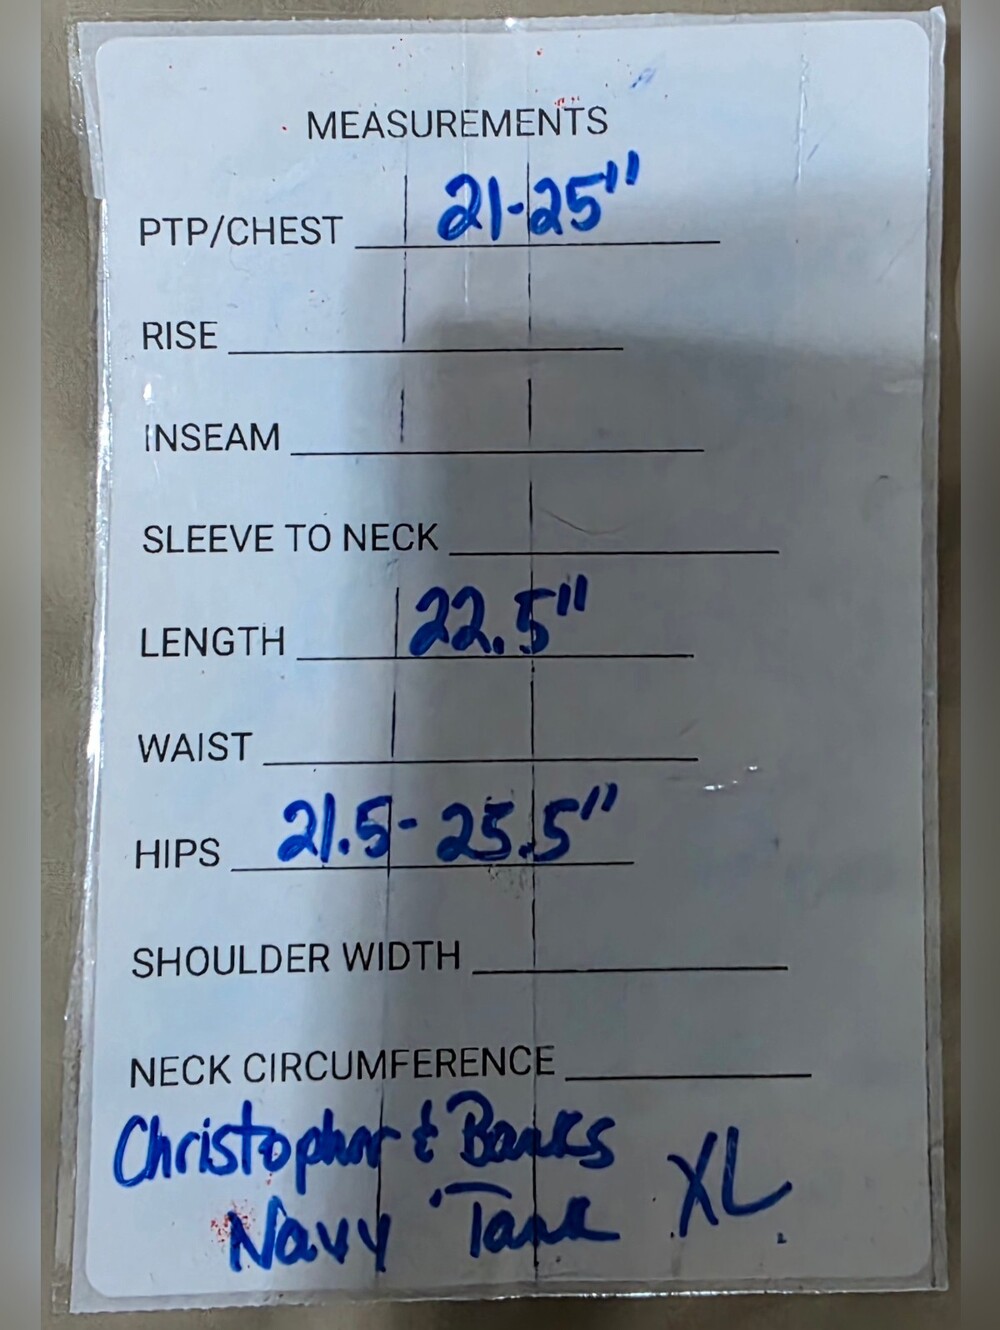 MEASUREMENTS
PTP/CHEST 21-25"
RISE
INSEAM
SLEEVE TO NECK
LENGTH 22.5"
WAIST
HIPS 21.5-25.5"
SHOULDER WIDTH
NECK CIRCUMFERENCE
Christopher & Banks
Navy Tank XL